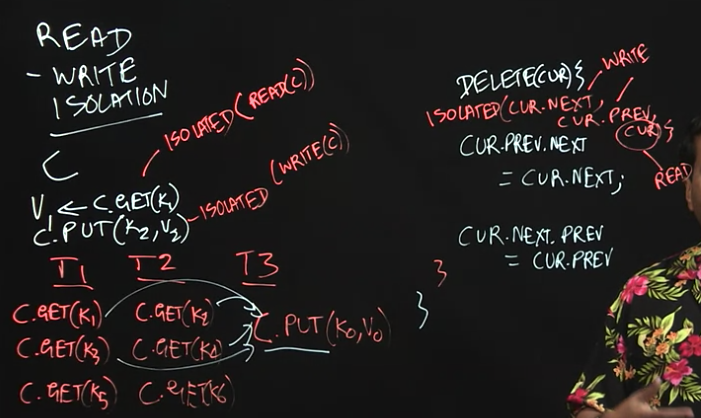 READ
- WRITE
ISOLATION
C
ISOLATED (READ(C))
V1 ← C.GET(K1)
C.PUT(K2,V2)
ISOLATED (WRITE(C))
T1 T2 T3
C.GET(K1) C.GET(K2)
C.PUT(K0,V0)
C.GET(K3) C.GET(K4)
C.GET(K5) C.GET(K6)
WRITE
DELETE(CUR){
ISOLATED(CUR.NEXT,
CUR.PREV,
CUR){
READ
CUR.PREV.NEXT
= CUR.NEXT;
CUR.NEXT.PREV
= CUR.PREV
}
}